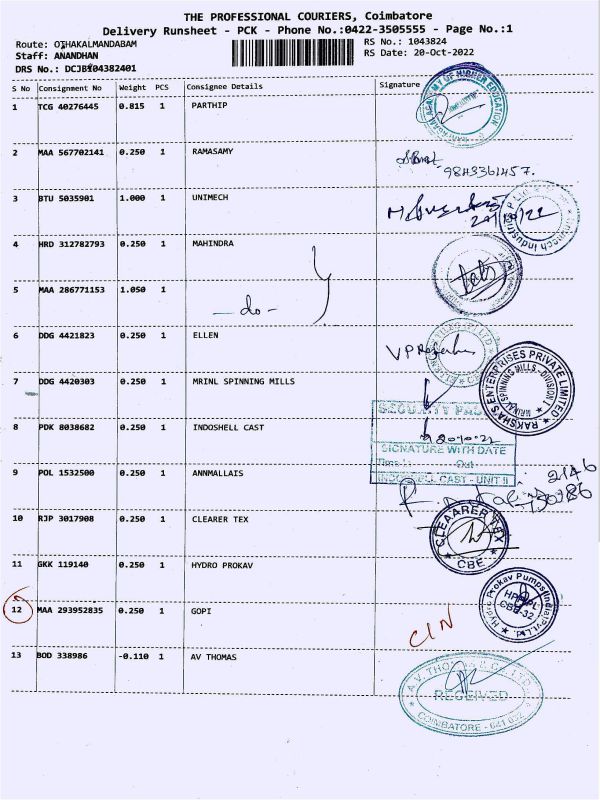 THE PROFESSIONAL COURIERS, Coimbatore
Delivery Runsheet - PCK - Phone No.:0422-3505555 - Page No.:1
Route: OTHAKALMANDABAM
RS No.: 1043824
Staff: ANANDHAN
RS Date: 20-Oct-2022
DRS No.: DCJB104382401
S No Consignment No Weight PCS Consignee Details Signature
1 TCG 40276445 0.815 1 PARTHIP
2 MAA 567702141 0.250 1 RAMASAMY
9843361457.
3 BTU 5035901 1.000 1 UNIMECH
4 HRD 312782793 0.250 1 MAHINDRA
5 MAA 286771153 1.050 1
-do-
6 DDG 4421823 0.250 1 ELLEN
7 DDG 4420303 0.250 1 MRINL SPINNING MILLS
RAKSHA'S ENTERPRISES PRIVATE LIMITED
MRINAL SPINNING MILLS - DIVISION
8 PDK 8038682 0.250 1 INDOSHELL CAST
SIGNATURE WITH DATE
Out
INDOSHELL CAST - UNIT II
9 POL 1532500 0.250 1 ANNMALLAIS
2146
10 RJP 3017908 0.250 1 CLEARER TEX
CLEAARER TEX
CBE
11 GKK 119140 0.250 1 HYDRO PROKAV
Hydro Prokav Pumps (India) Pvt. Ltd.
12 MAA 293952835 0.250 1 GOPI
C/N
13 BOD 338986 -0.110 1 AV THOMAS
A.V. THOMAS & CO. LTD.
RECEIVED
COIMBATORE - 641 032